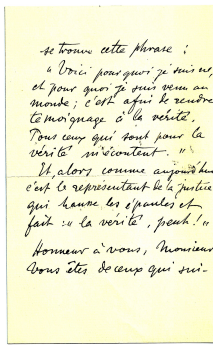 se trouve cette phrase :
"Voici pourquoi je suis né,
et pour quoi je suis venu au
monde ; c'est afin de rendre
témoignage à la vérité.
Tous ceux qui sont pour la
vérité m'écoutent."
Et, alors comme aujourd'hui
c'est le représentant de la justice
qui hausse les épaules et
fait : "la vérité, peuh !"
Honneur à vous, Monsieur
vous êtes de ceux qui sui-